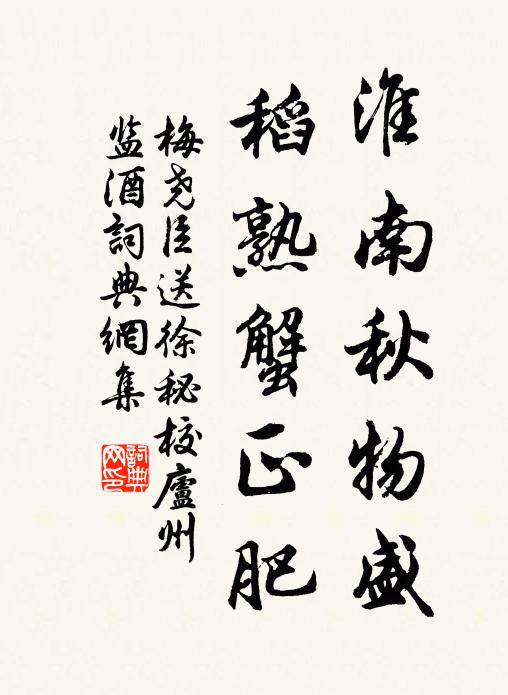 淮南秋物盛
稻熟蟹正肥
梅尧臣送徐秘校廬州
监酒詞典網集
詞典
网印